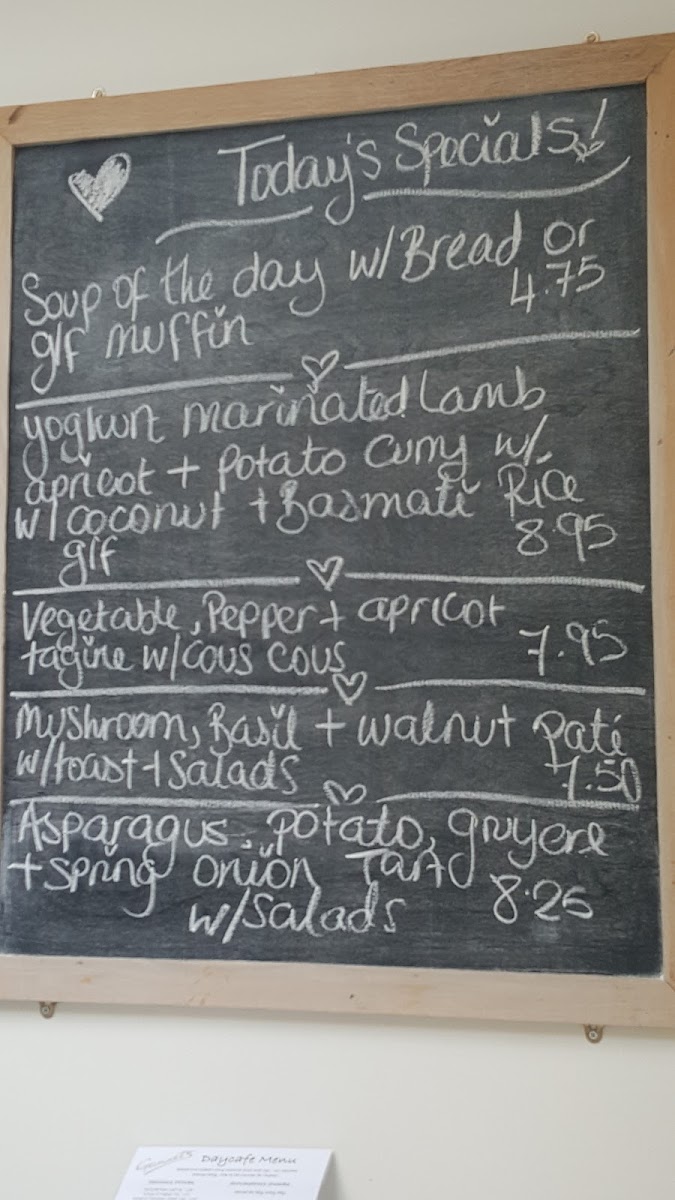 Today's Specials!
Soup of the day w/Bread or
g/f muffin 4.75
yoghurt marinated Lamb
apricot + Potato Curry w/.
w/coconut + Basmati Rice
g/f 8.95
Vegetable, Pepper + apricot
tagine w/cous cous 7.95
Mushroom, Basil + walnut paté
w/toast + Salads 7.50
Asparagus, potato, gruyere
+ spring onion Tart
w/Salads 8.25
Daycafe Menu